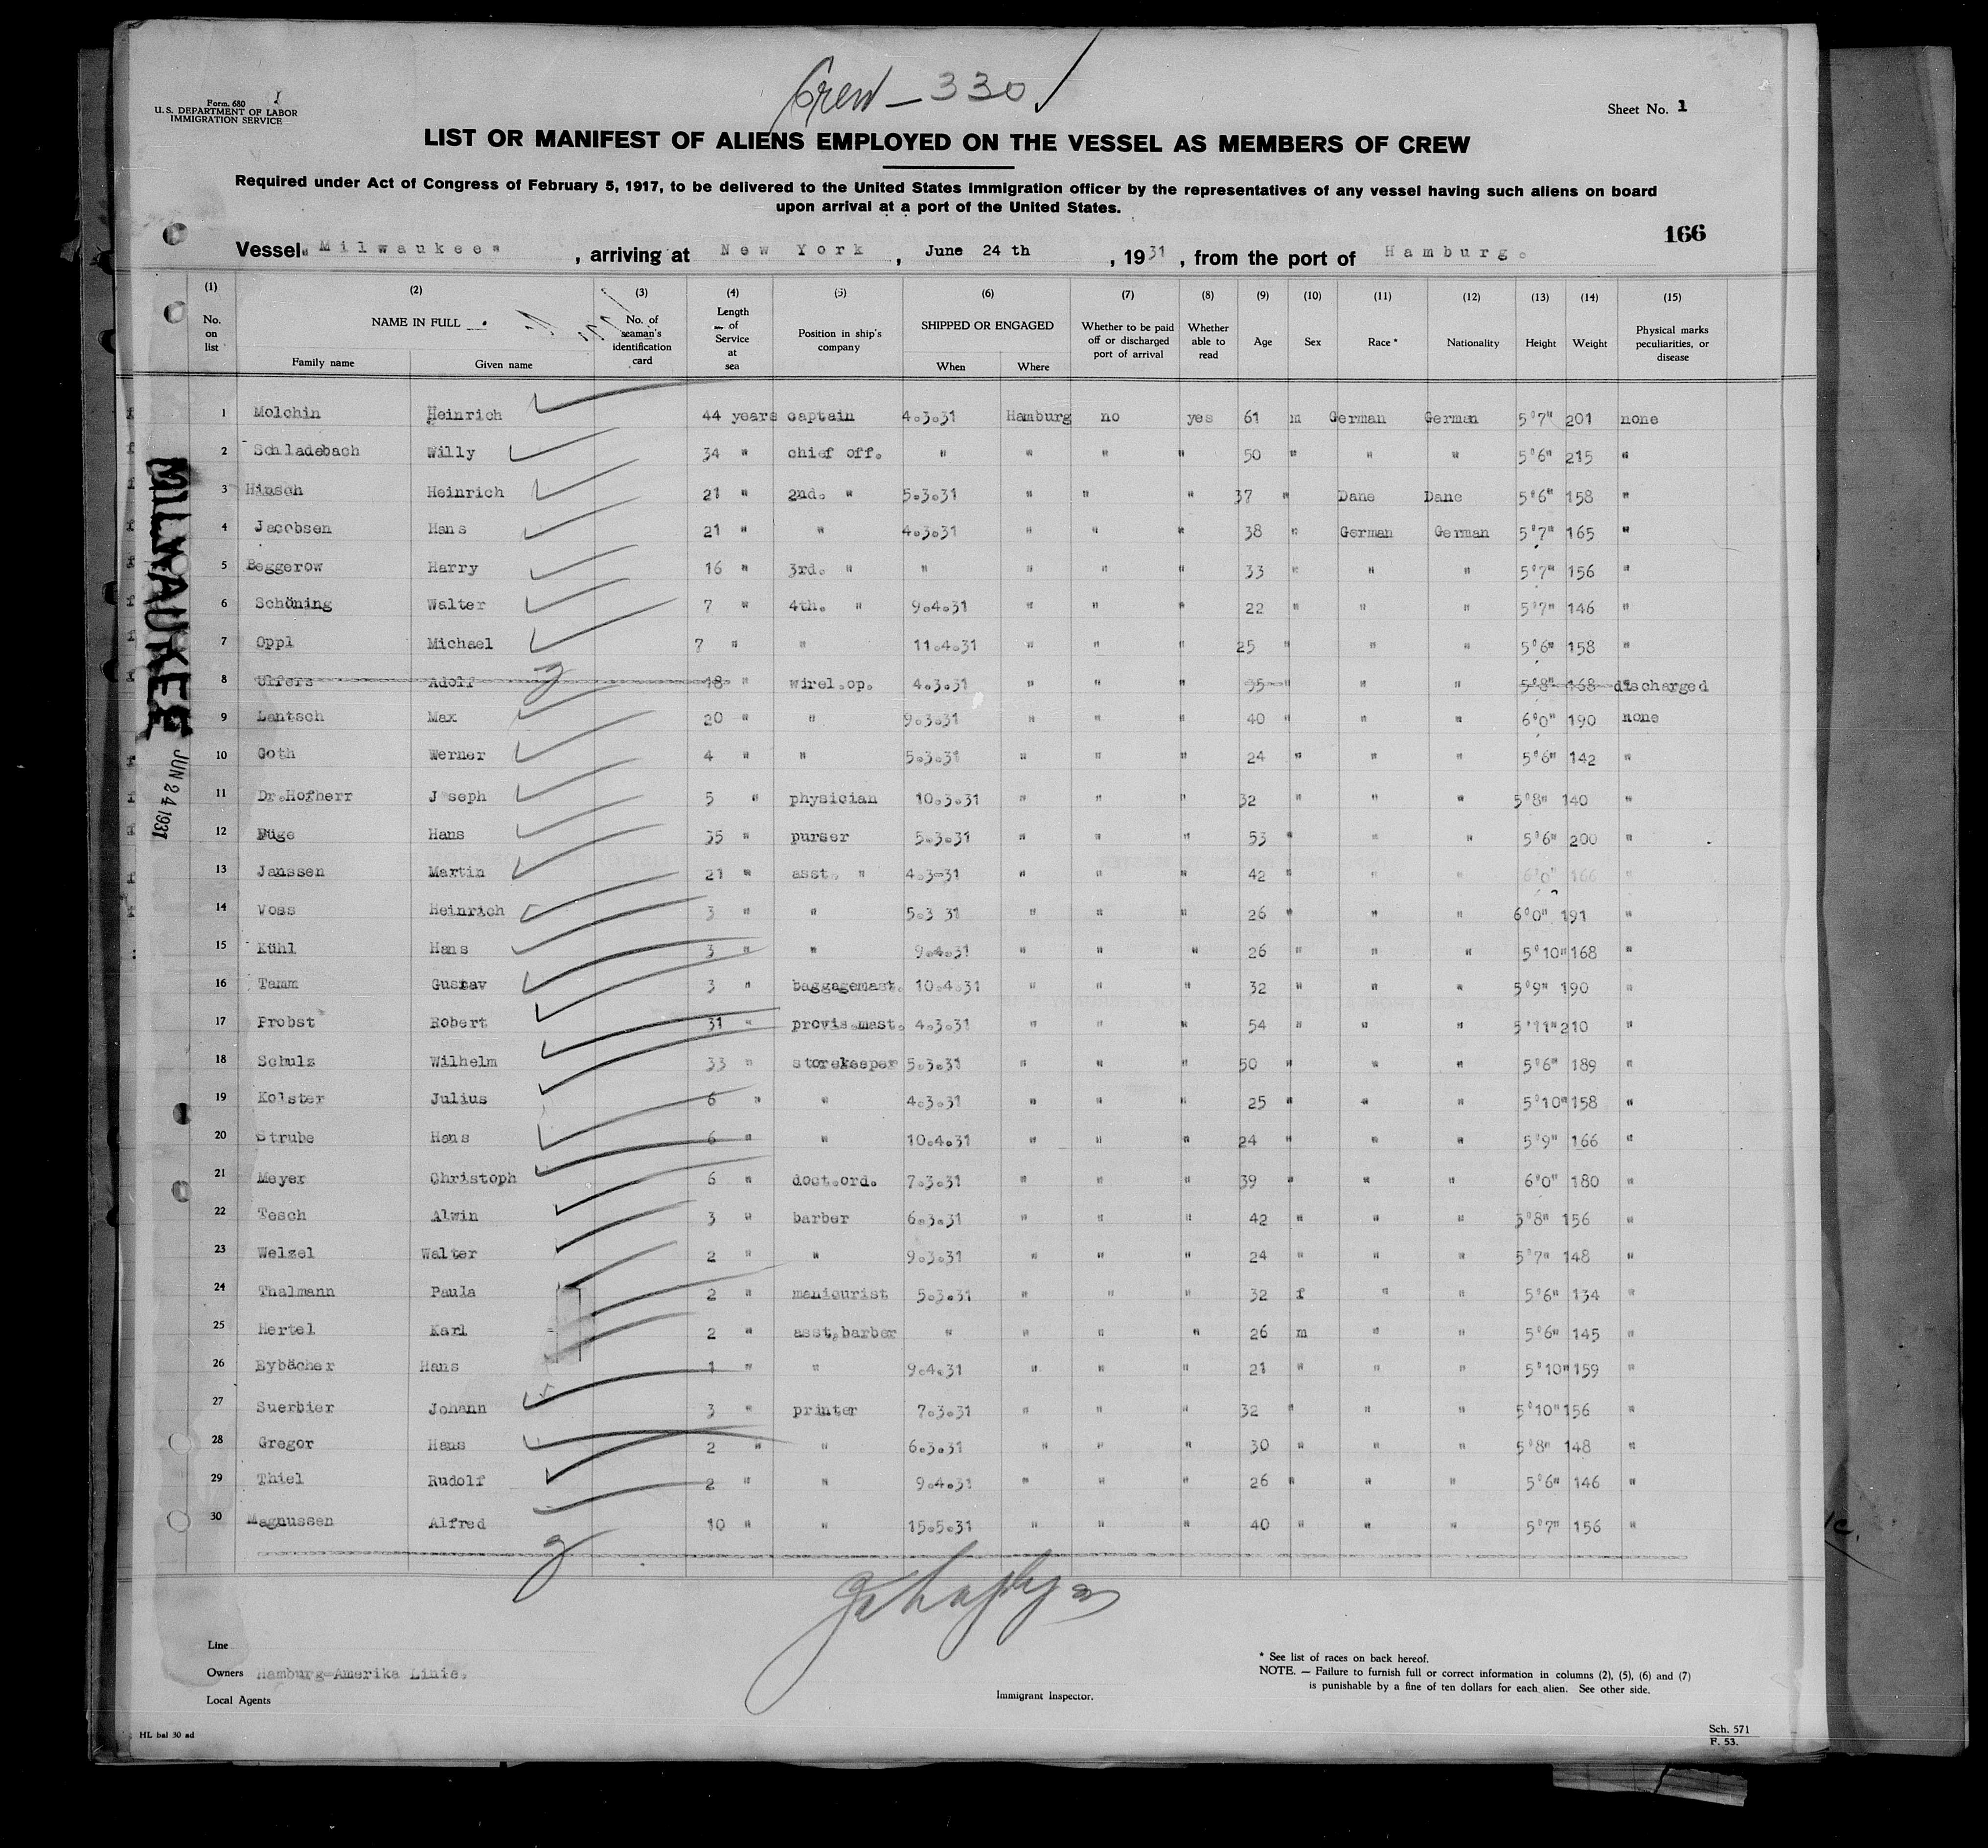 Crew - 330
Form. 680
U.S. DEPARTMENT OF LABOR
IMMIGRATION SERVICE
Sheet No. 1
LIST OR MANIFEST OF ALIENS EMPLOYED ON THE VESSEL AS MEMBERS OF CREW
Required under Act of Congress of February 5, 1917, to be delivered to the United States Immigration officer by the representatives of any vessel having such aliens on board
upon arrival at a port of the United States.
166
Vessel "Milwaukee", arriving at New York, June 24 th, 1931, from the port of Hamburg.
(1) (2) (3) (4) (5) (6) (7) (8) (9) (10) (11) (12) (13) (14) (15)
No. on list NAME IN FULL Family name Given name No. of seaman's identification card Length of Service at sea Position in ship's company SHIPPED OR ENGAGED When Where Whether to be paid off or discharged port of arrival Whether able to read Age Sex Race * Nationality Height Weight Physical marks peculiarities, or disease
1 Molchin Heinrich 44 years captain 4.3.31 Hamburg no yes 61 m German German 5'7" 201 none
2 Schladebach Willy 34 " chief off. " " " " 50 " " " 5'6" 215 "
3 Hinsch Heinrich 21 " 2nd. " 5.3.31 " " " 37 " Dane Dane 5'6" 158 "
4 Jacobsen Hans 21 " " 4.3.31 " " " 38 " German German 5'7" 165 "
5 Beggerow Harry 16 " 3rd. " " " " " 33 " " " 5'7" 156 "
6 Schöning Walter 7 " 4th. " 9.4.31 " " " 22 " " " 5'7" 146 "
7 Oppl Michael 7 " " 11.4.31 " " " 25 " " " 5'6" 158 "
8 Ulfers Adolf 18 " wirel.op. 4.3.31 " " " " " " 5'8" 168 discharged
9 Lentsch Max 20 " " 9.3.31 " " " 40 " " " 6'0" 190 none
10 Goth Werner 4 " " 5.3.31 " " " 24 " " " 5'6" 142 "
11 Dr.Hofherr J seph 5 " physician 10.3.31 " " " 32 " " " 5'8" 140 "
12 Füge Hans 35 " purser 5.3.31 " " " 53 " " " 5'6" 200 "
13 Janssen Martin 21 " asst. " 4.3.31 " " " 42 " " " 6'0" 166 "
14 Voss Heinrich 3 " " 5.3 31 " " " 26 " " " 6'0" 191 "
15 Kühl Hans 3 " " 9.4.31 " " " 26 " " " 5'10" 168 "
16 Tamm Gustav 3 " baggagemast. 10.4.31 " " " 32 " " " 5'9" 190 "
17 Probst Robert 31 " provis.mast. 4.3.31 " " " 54 " " " 5'11" 210 "
18 Schulz Wilhelm 33 " storekeeper 5.3.31 " " " 50 " " " 5'6" 189 "
19 Kolster Julius 6 " " 4.3.31 " " " 25 " " " 5'10" 158 "
20 Strube Hans 6 " " 10.4.31 " " " 24 " " " 5'9" 166 "
21 Meyer Christoph 6 " doct.ord. 7.3.31 " " " 39 " " " 6'0" 180 "
22 Tesch Alwin 3 " barber 6.3.31 " " " 42 " " " 5'8" 156 "
23 Welzel Walter 2 " " 9.3.31 " " " 24 " " " 5'7" 148 "
24 Thalmann Paula 2 " manicurist 5.3.31 " " " 32 f " " 5'6" 134 "
25 Hertel Karl 2 " asst.barber " " " " 26 m " " 5'6" 145 "
26 Eybächer Hans 1 " " 9.4.31 " " " 21 " " " 5'10" 159 "
27 Suerbier Johann 3 " printer 7.3.31 " " " 32 " " " 5'10" 156 "
28 Gregor Hans 2 " " 6.3.31 " " " 30 " " " 5'8" 148 "
29 Thiel Rudolf 2 " " 9.4.31 " " " 26 " " " 5'6" 146 "
30 Magnussen Alfred 10 " " 15.5.31 " " " 40 " " " 5'7" 156 "
MILWAUKEE JUN 24 1931
Line
Owners Hamburg-Amerika Linie.
Local Agents
Immigrant Inspector.
* See list of races on back hereof.
NOTE. — Failure to furnish full or correct information in columns (2), (5), (6) and (7)
is punishable by a fine of ten dollars for each alien. See other side.
HL bal 30 ad
Sch. 571
F. 53.